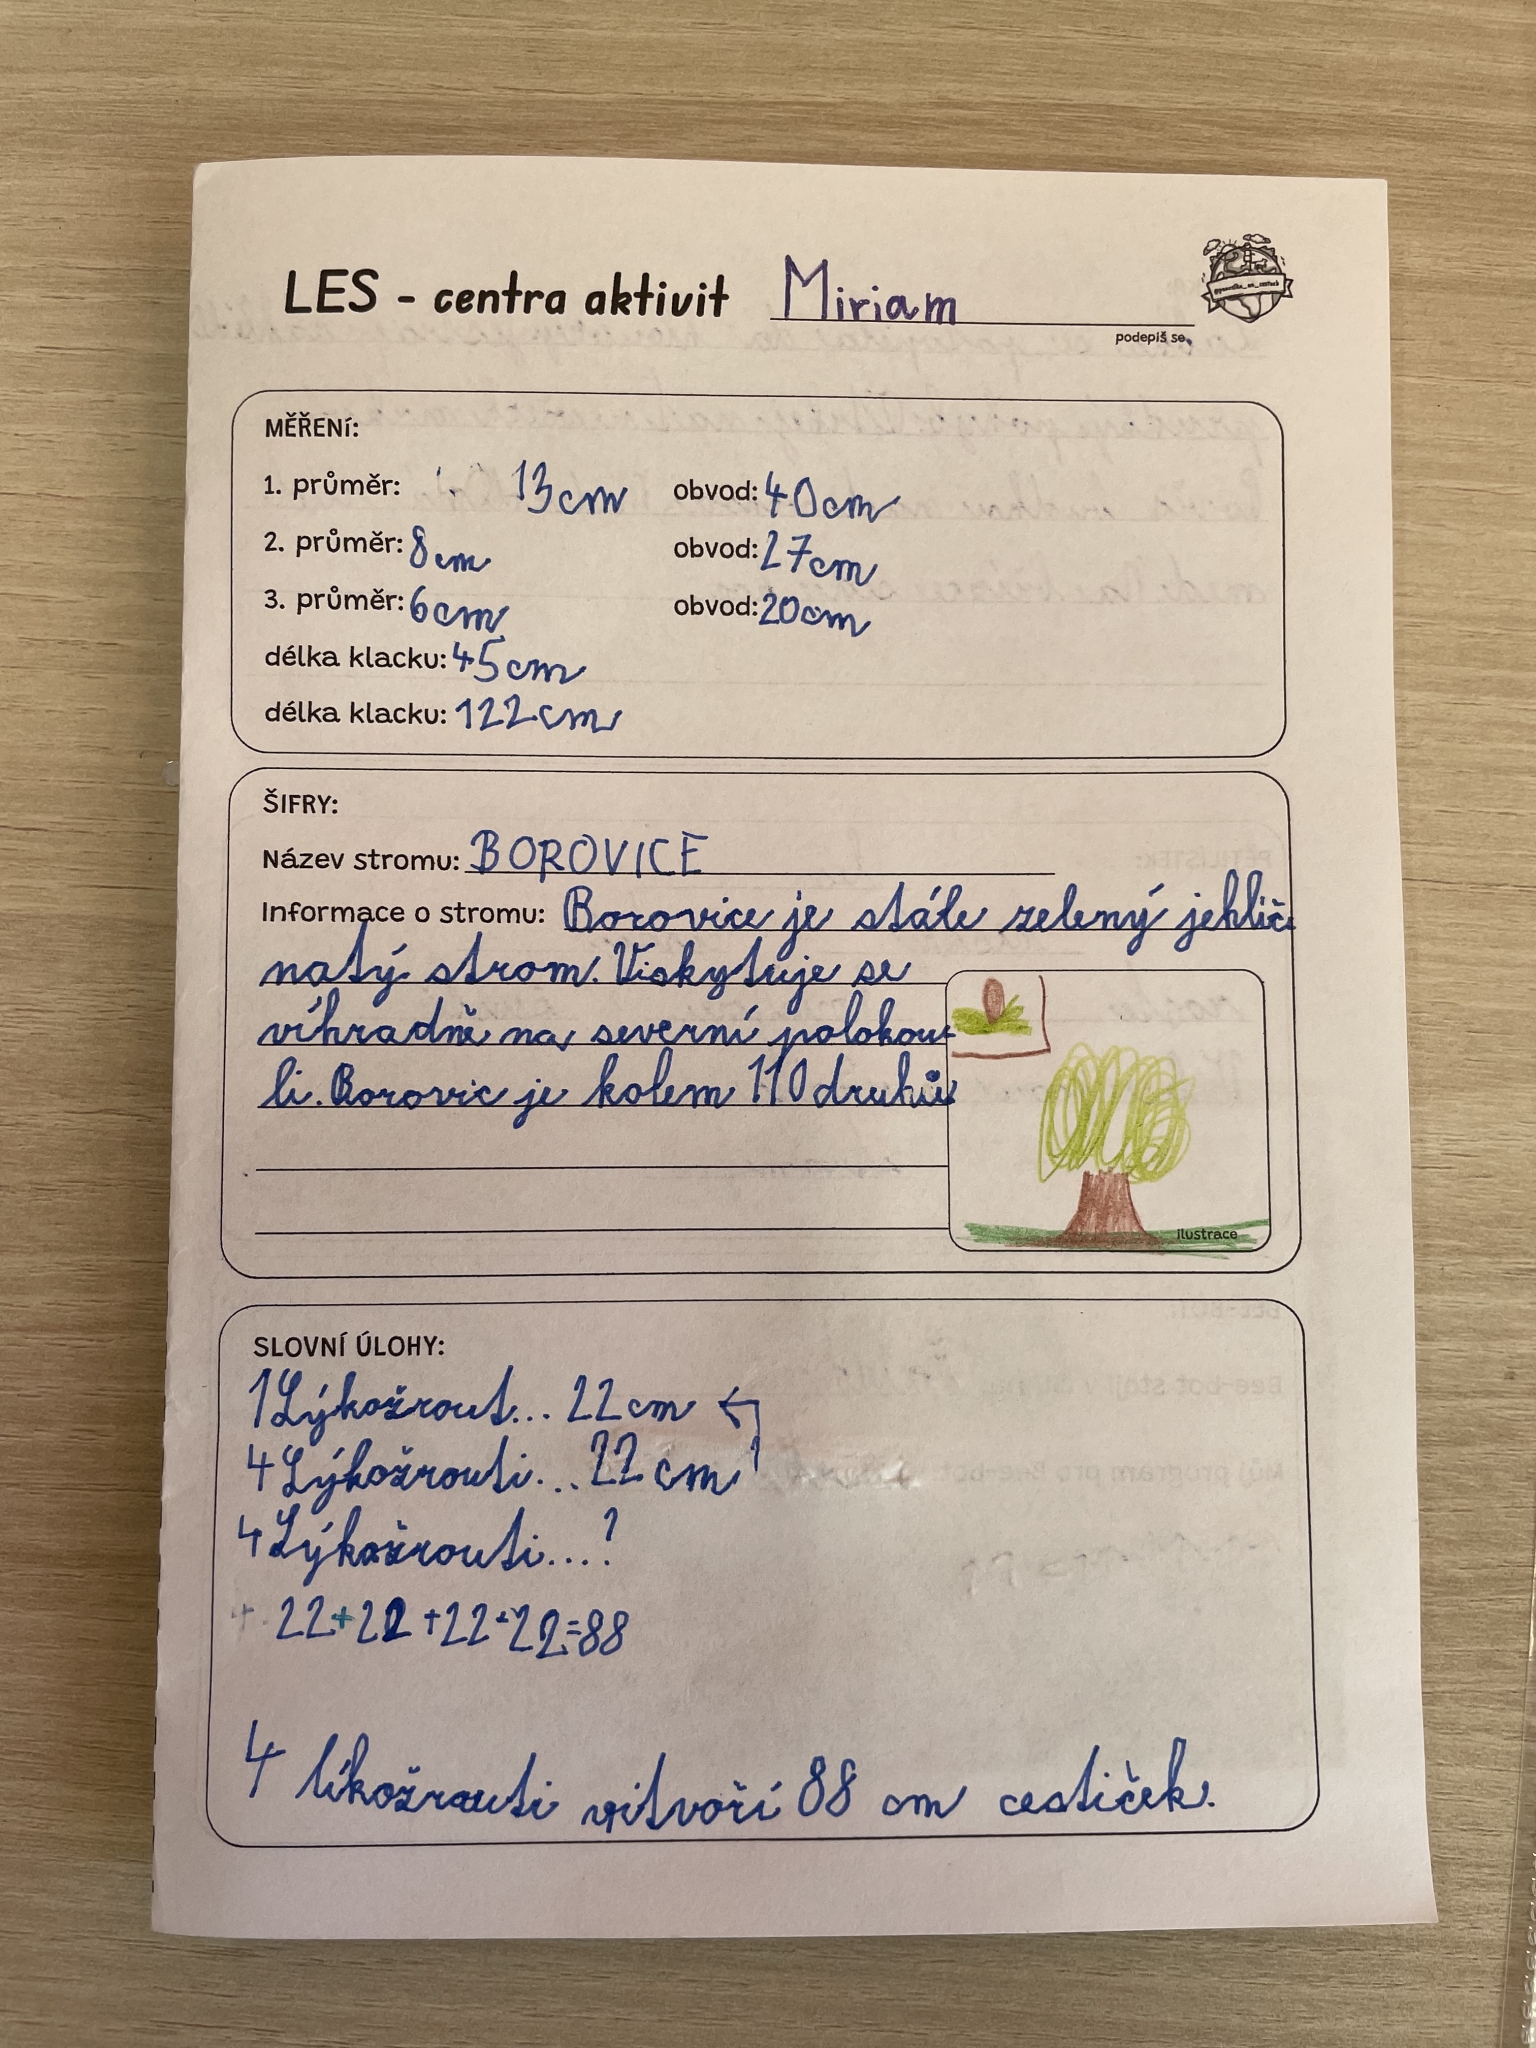 LES - centra aktivit Miriam
podepiš se
MĚŘENÍ:
1. průměr: 13cm obvod: 40cm
2. průměr: 8cm obvod: 27cm
3. průměr: 6cm obvod: 20cm
délka klacku: 45cm
délka klacku: 122cm
ŠIFRY:
Název stromu: BOROVICE
Informace o stromu: Borovice je stále zelený jehlič
natý strom. Viskytuje se
víhradně na severní polokou-
li. Borovic je kolem 110 druhů
ilustrace
SLOVNÍ ÚLOHY:
1 Lýkožrout... 22 cm
4 Lýkožrouti... 22 cm
4 Lýkožrouti...?
22+22+22+22=88
4 líkožrouti vitvoří 88 cm cestiček.